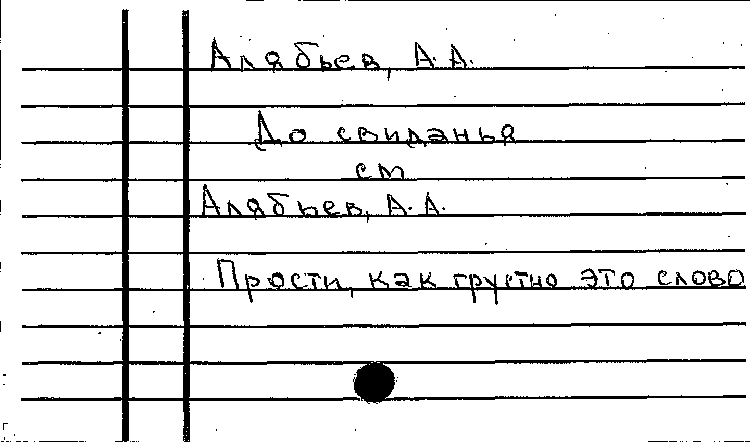 Алябьев, А.А.
До свиданья
см
Алябьев, А.А.
Прости, как грустно это слово